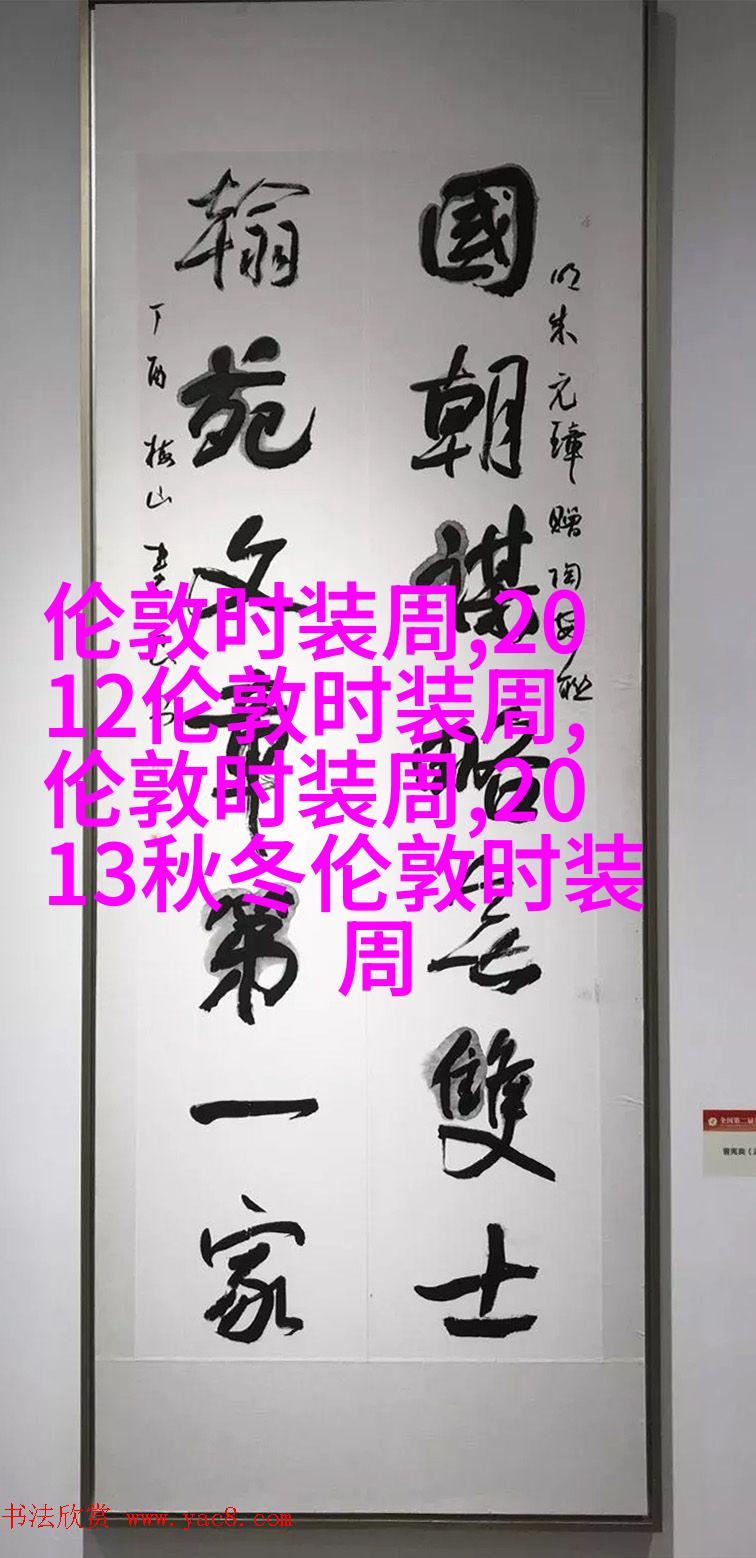 明朱元璋赠陶安联
國朝謀略無雙士
翰苑文章第一家
丁酉 梅山
伦敦时装周,20
12伦敦时装周,
伦敦时装周,20
13秋冬伦敦时装
周
全国第二届
曹寓奕(
书法欣赏 www.yac8.com